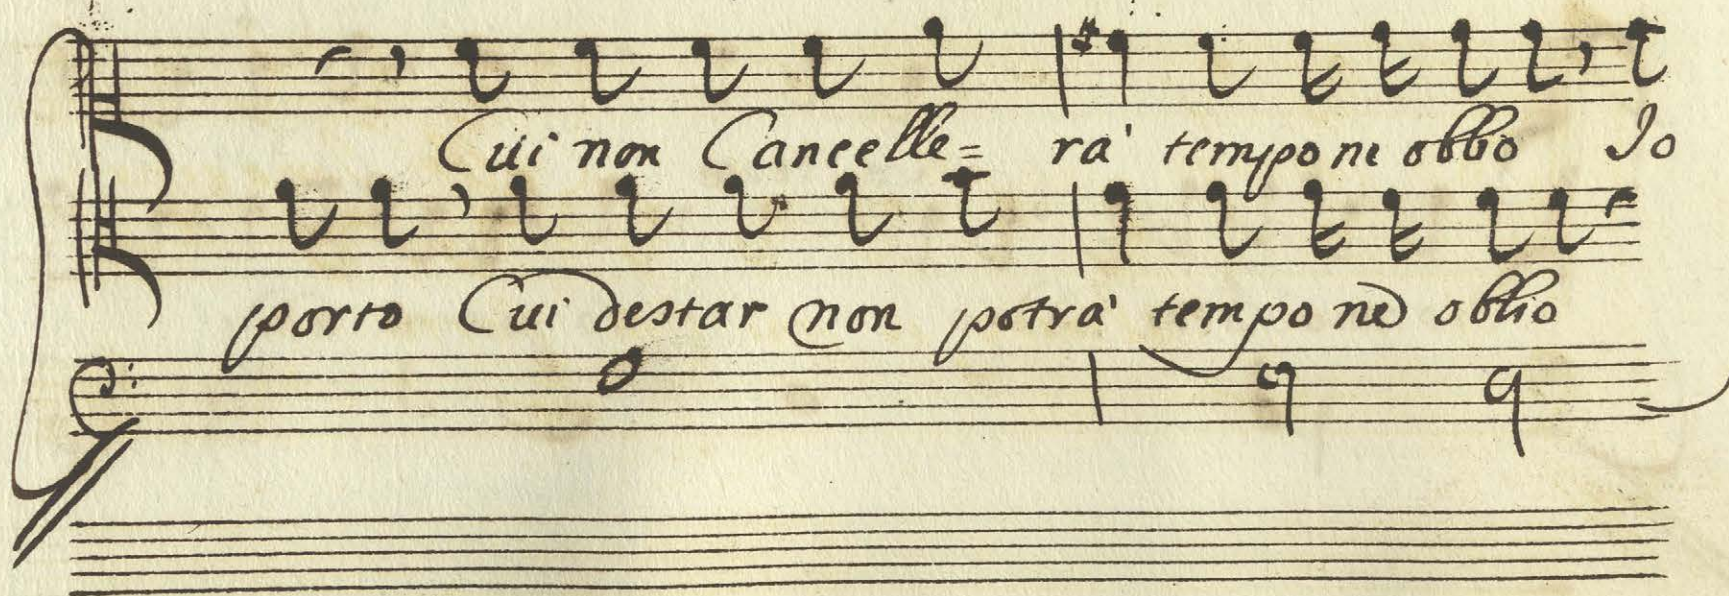 Cui non Cancelle= rà tempo ne obbo Io
porto Cui destar non potrà tempo ne oblio